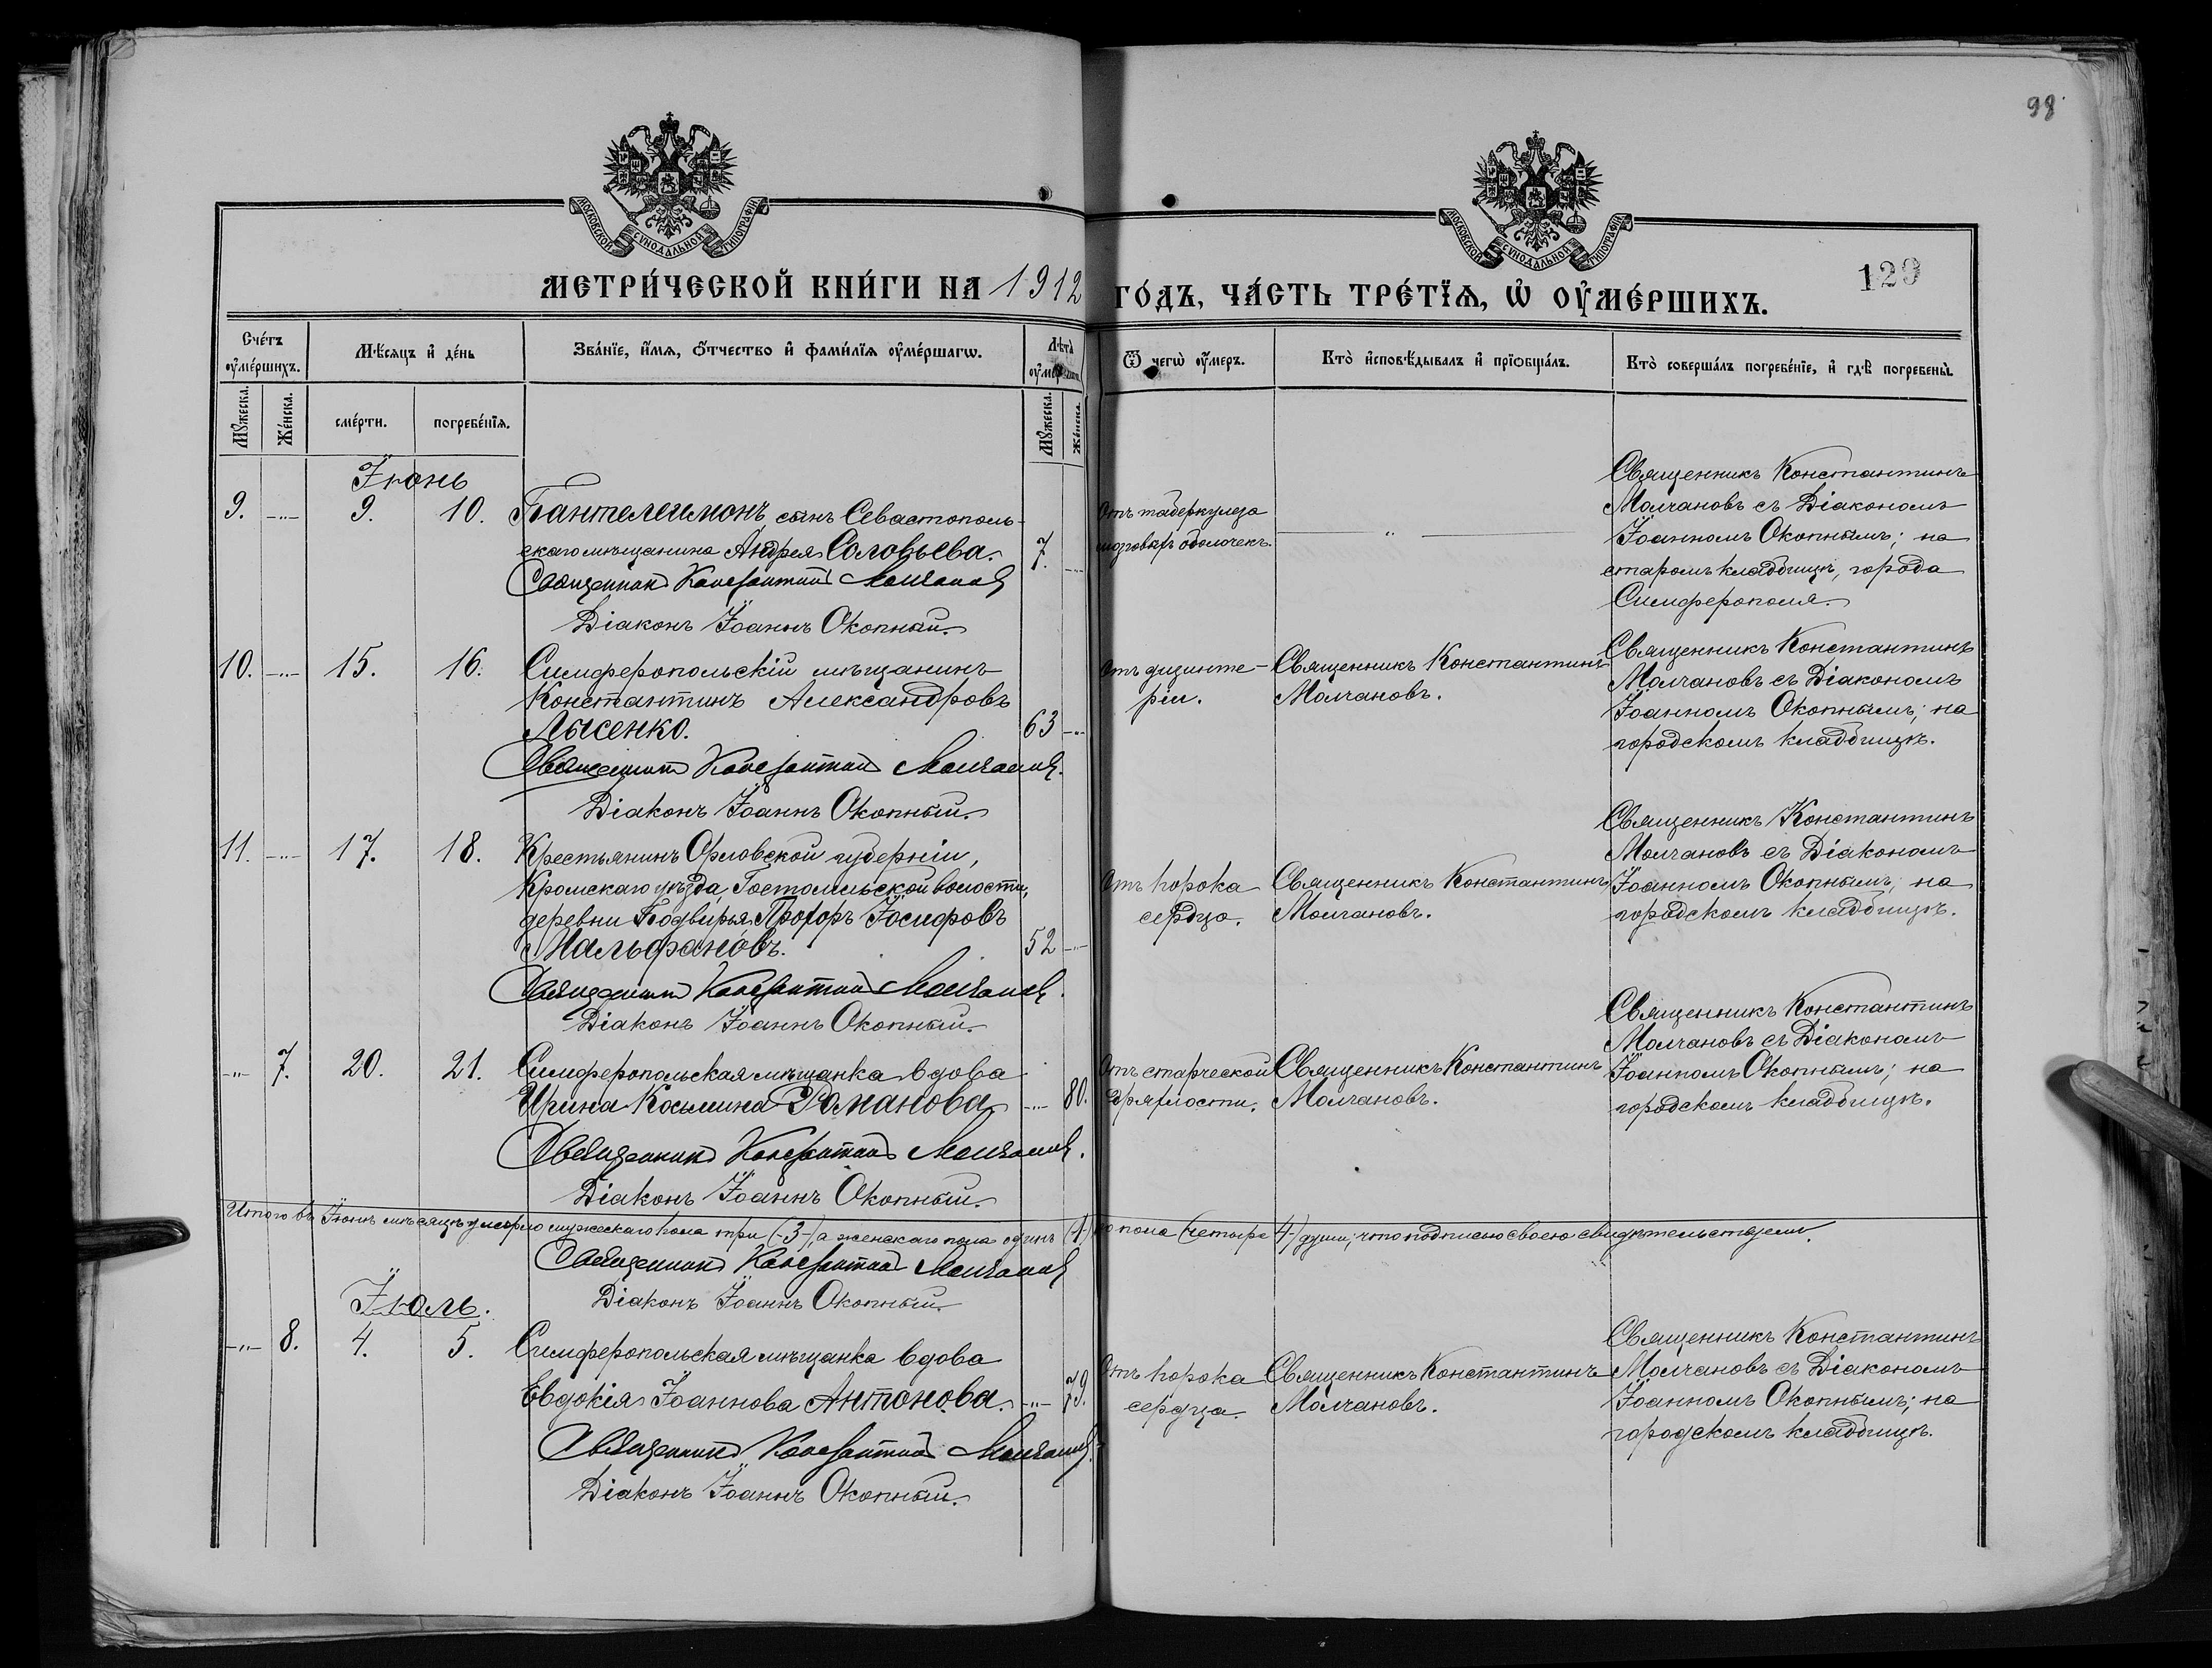 98
МОСКОВСКОЙ СѴНОДАЛЬНОЙ ТИПОГРАФІИ
МОСКОВСКОЙ СѴНОДАЛЬНОЙ ТИПОГРАФІИ
129
МЕТРИ́ЧЕСКОЙ КНИ́ГИ НА 1912 ГО́ДЪ, ЧА́СТЬ ТРЕ́ТЇѦ, Ѡ҆ ОУ҆МЕ́РШИХЪ.
Сче́тъ оу҆ме́ршихъ.
Мѣ́сяцъ и҆ де́нь
Зва́нїе, и҆́мѧ, ѻ҆́тчество и҆ фами́лїѧ оу҆ме́ршагѡ.
Лѣ́та оу҆ме́ршагѡ.
Ѿ чегѡ̀ оу҆́меръ.
Кто̀ и҆сповѣ́дывалъ и҆ прїѡбща́лъ.
Кто̀ соверша́лъ погребе́нїе, и҆ гдѣ̀ погребены̀.
Мꙋ́жеска.
Же́нска.
сме́рти.
погребе́нїѧ.
Мꙋ́жеска.
Же́нска.
Іюнь
9. -"- 9. 10.
Пантелеимонъ, сынъ Севастополь-
скаго мѣщанина Андрея Соловьева.
7. -"-
Священникъ Константинъ Молчановъ
Діаконъ Іоаннъ Окопный.
Отъ туберкулеза
мозговыхъ оболочекъ.
-"-
Священникъ Константинъ
Молчановъ съ Діакономъ
Іоанномъ Окопнымъ; на
старомъ кладбищѣ, города
Симферополя.
10. -"- 15. 16.
Симферопольскій мѣщанинъ
Константинъ Александровъ
Лысенко.
63 -"-
Священникъ Константинъ Молчановъ.
Діаконъ Іоаннъ Окопный.
Отъ дизенте-
ріи.
Священникъ Константинъ
Молчановъ.
Священникъ Константинъ
Молчановъ съ Діакономъ
Іоанномъ Окопнымъ; на
городскомъ кладбищѣ.
11. -"- 17. 18.
Крестьянинъ Орловской губерніи,
Кромскаго уѣзда, Гостомльской волости,
деревни Подвирья Прохоръ Іосифовъ
Мальфановъ.
52 -"-
Священникъ Константинъ Молчановъ.
Діаконъ Іоаннъ Окопный.
Отъ порока
сердца.
Священникъ Константинъ
Молчановъ.
Священникъ Константинъ
Молчановъ съ Діакономъ
Іоанномъ Окопнымъ; на
городскомъ кладбищѣ.
-"- 7. 20. 21.
Симферопольская мѣщанка вдова
Ирина Косьмина Романова.
-"- 80.
Священникъ Константинъ Молчановъ.
Діаконъ Іоаннъ Окопный.
Отъ старческой
дряхлости.
Священникъ Константинъ
Молчановъ.
Священникъ Константинъ
Молчановъ съ Діакономъ
Іоанномъ Окопнымъ; на
городскомъ кладбищѣ.
Итого въ Іюнѣ мѣсяцѣ умерло мужескаго пола три (-3-), а женскаго пола одинъ (1) пола (четыре 4) души; что подписью своею свидѣтельствуемъ.
Священникъ Константинъ Молчановъ
Діаконъ Іоаннъ Окопный.
Іюль.
-"- 8. 4. 5.
Симферопольская мѣщанка вдова
Евдокія Іоаннова Антонова.
-"- 79.
Священникъ Константинъ Молчановъ.
Діаконъ Іоаннъ Окопный.
Отъ порока
сердца.
Священникъ Константинъ
Молчановъ.
Священникъ Константинъ
Молчановъ съ Діакономъ
Іоанномъ Окопнымъ; на
городскомъ кладбищѣ.